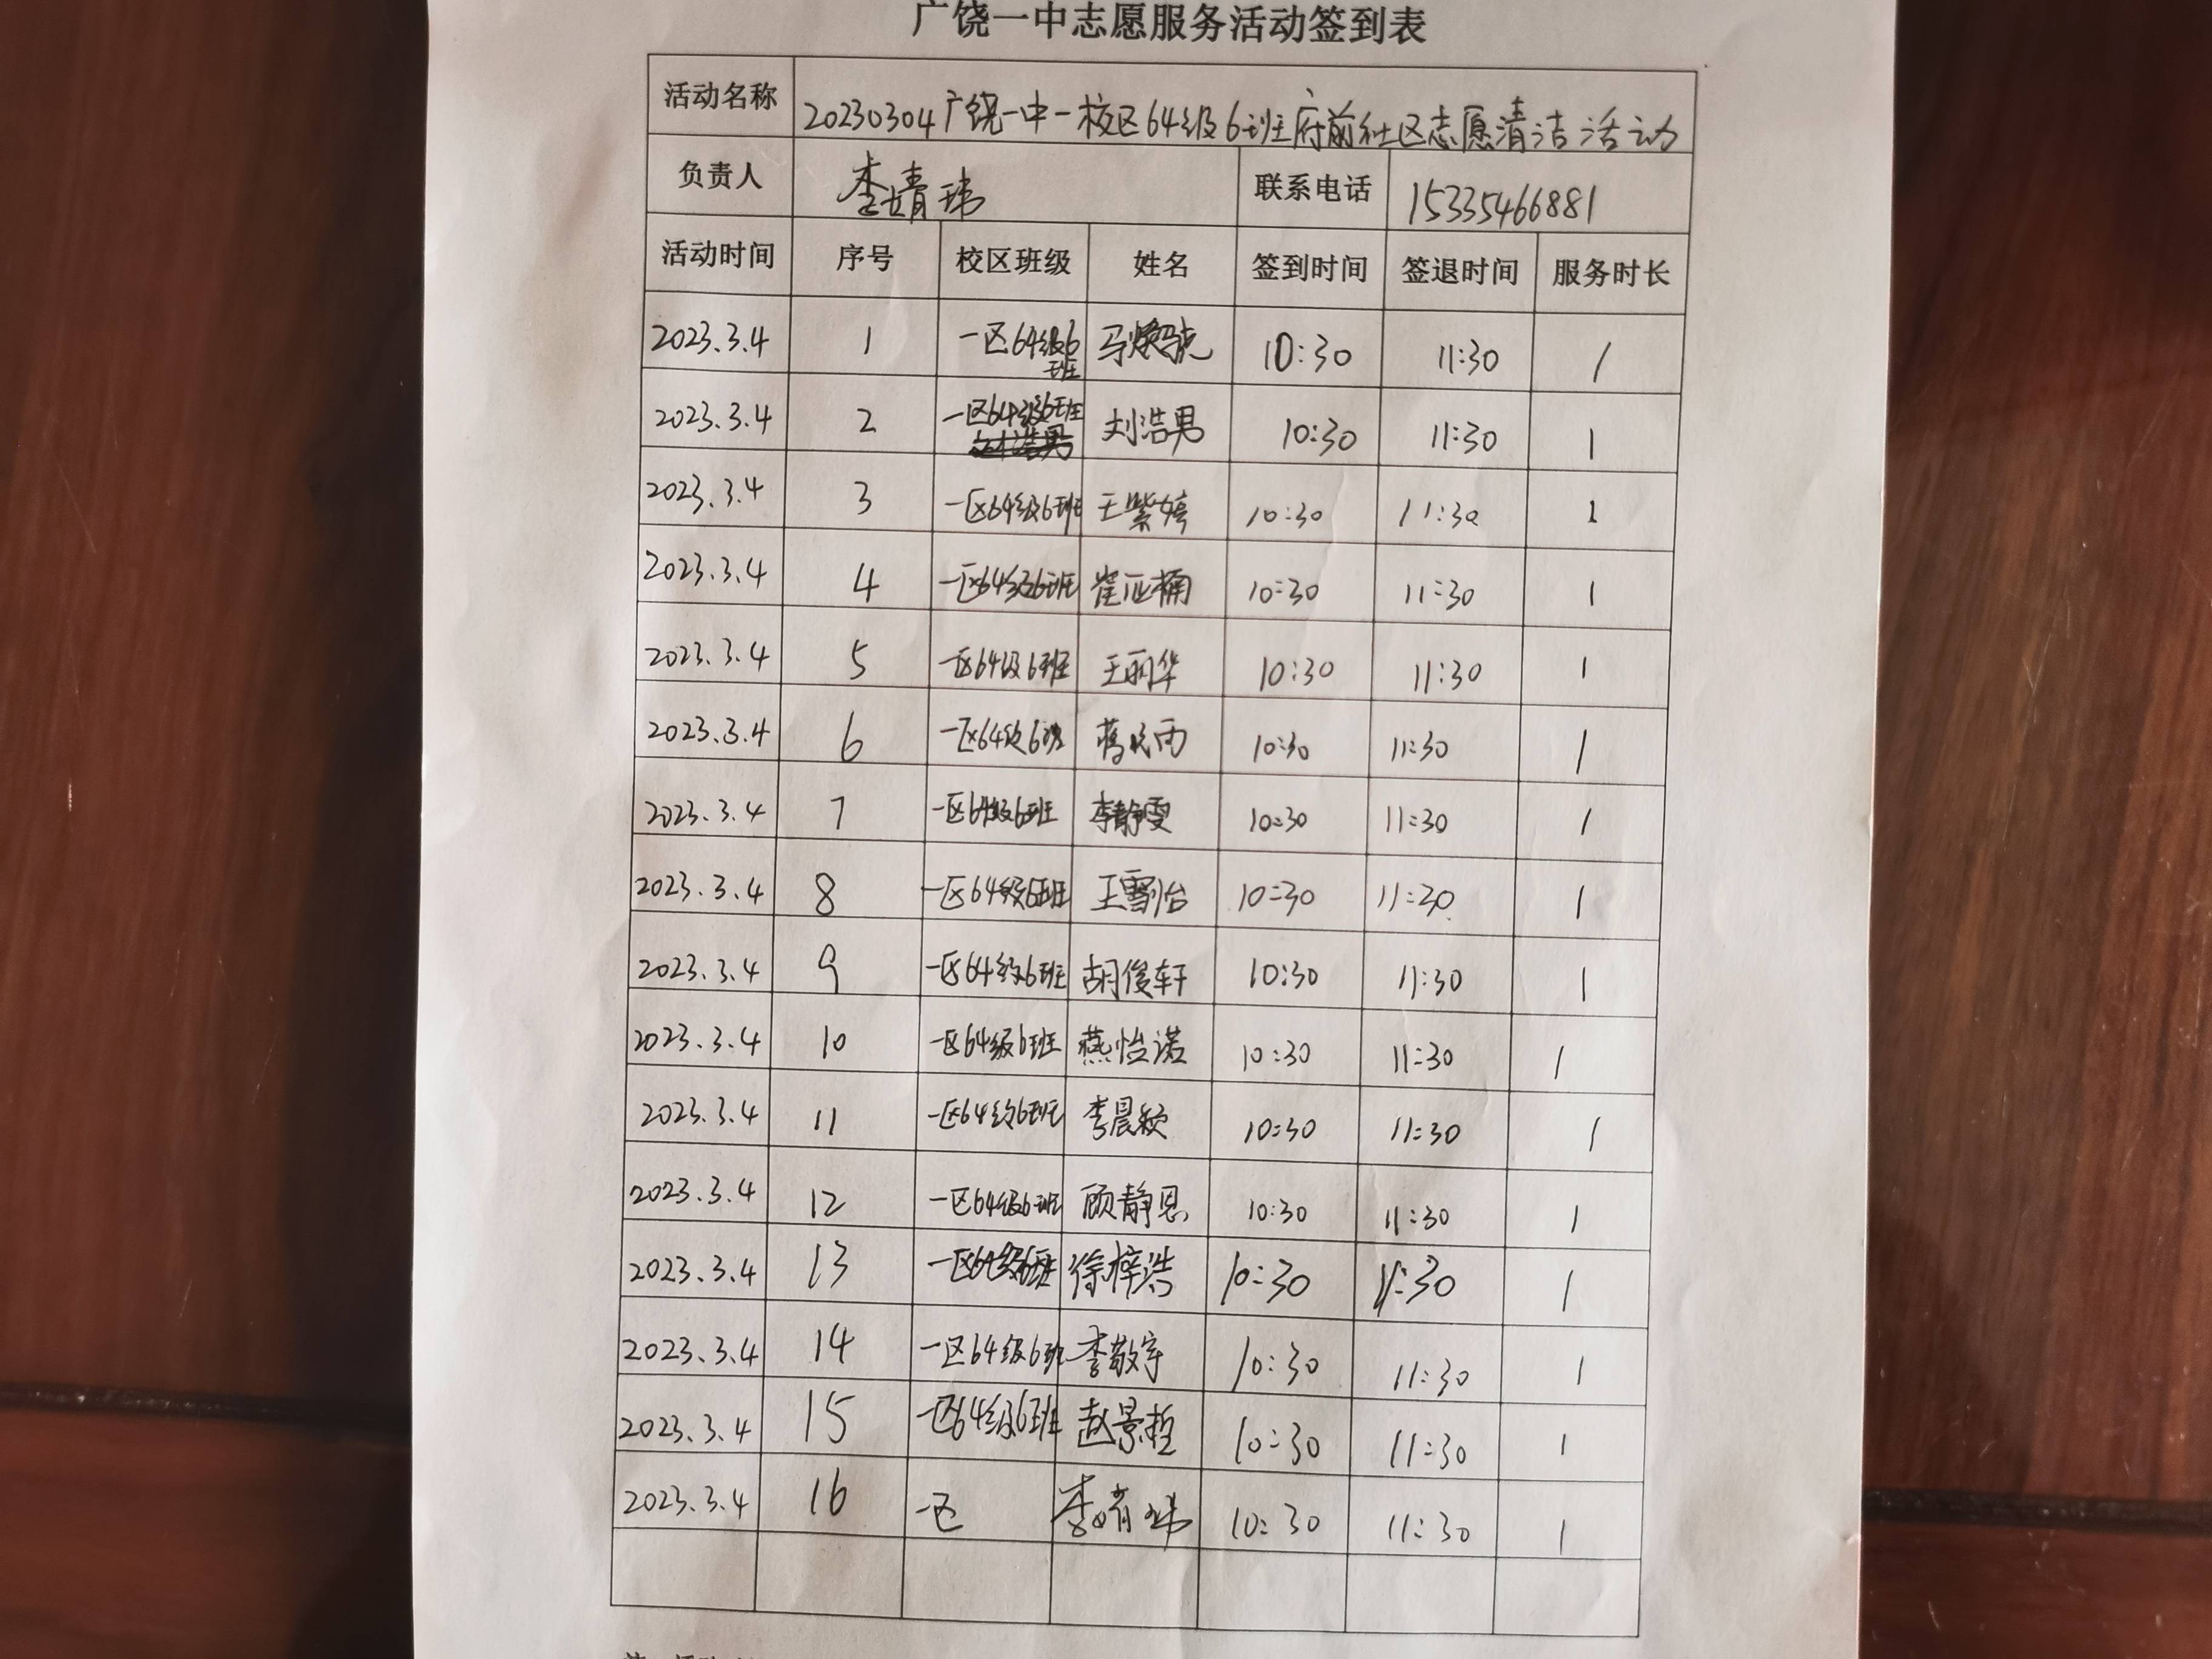 广饶一中志愿服务活动签到表
活动名称 20230304广饶一中一校区64级6班府前社区志愿清洁活动
负责人 李婧玮 联系电话 15335466881
活动时间 序号 校区班级 姓名 签到时间 签退时间 服务时长
2023.3.4 1 一区64级6班 马 10:30 11:30 1
2023.3.4 2 一区64级6班 刘浩男 10:30 11:30 1
2023.3.4 3 一区64级6班 王紫婷 10:30 11:30 1
2023.3.4 4 一区64级6班 崔 10:30 11:30 1
2023.3.4 5 一区64级6班 王丽华 10:30 11:30 1
2023.3.4 6 一区64级6班 蒋 雨 10:30 11:30 1
2023.3.4 7 一区64级6班 李静雯 10:30 11:30 1
2023.3.4 8 一区64级6班 王雪怡 10:30 11:30 1
2023.3.4 9 一区64级6班 胡俊轩 10:30 11:30 1
2023.3.4 10 一区64级6班 燕怡诺 10:30 11:30 1
2023.3.4 11 一区64级6班 李晨 10:30 11:30 1
2023.3.4 12 一区64级6班 顾静恩 10:30 11:30 1
2023.3.4 13 一区64级6班 徐梓浩 10:30 11:30 1
2023.3.4 14 一区64级6班 李敬宇 10:30 11:30 1
2023.3.4 15 一区64级6班 赵景哲 10:30 11:30 1
2023.3.4 16 一区 李婧玮 10:30 11:30 1